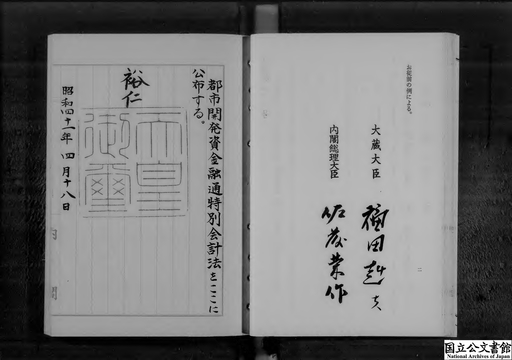 お従前の例による。
大蔵大臣 福田赳夫
内閣総理大臣 佐藤栄作
都市開発資金融通特別会計法をここに
公布する。
裕仁
天皇
御璽
昭和四十一年四月十八日
国立公文書館
National Archives of Japan